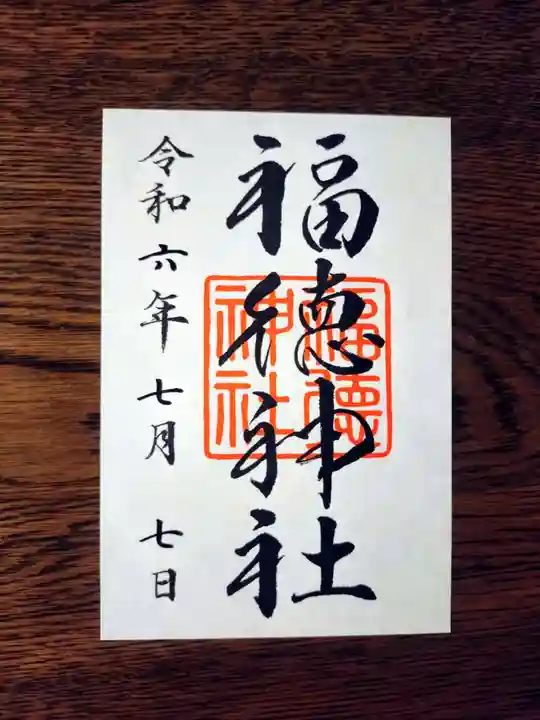 福徳神社
福德神社
令和六年七月七日